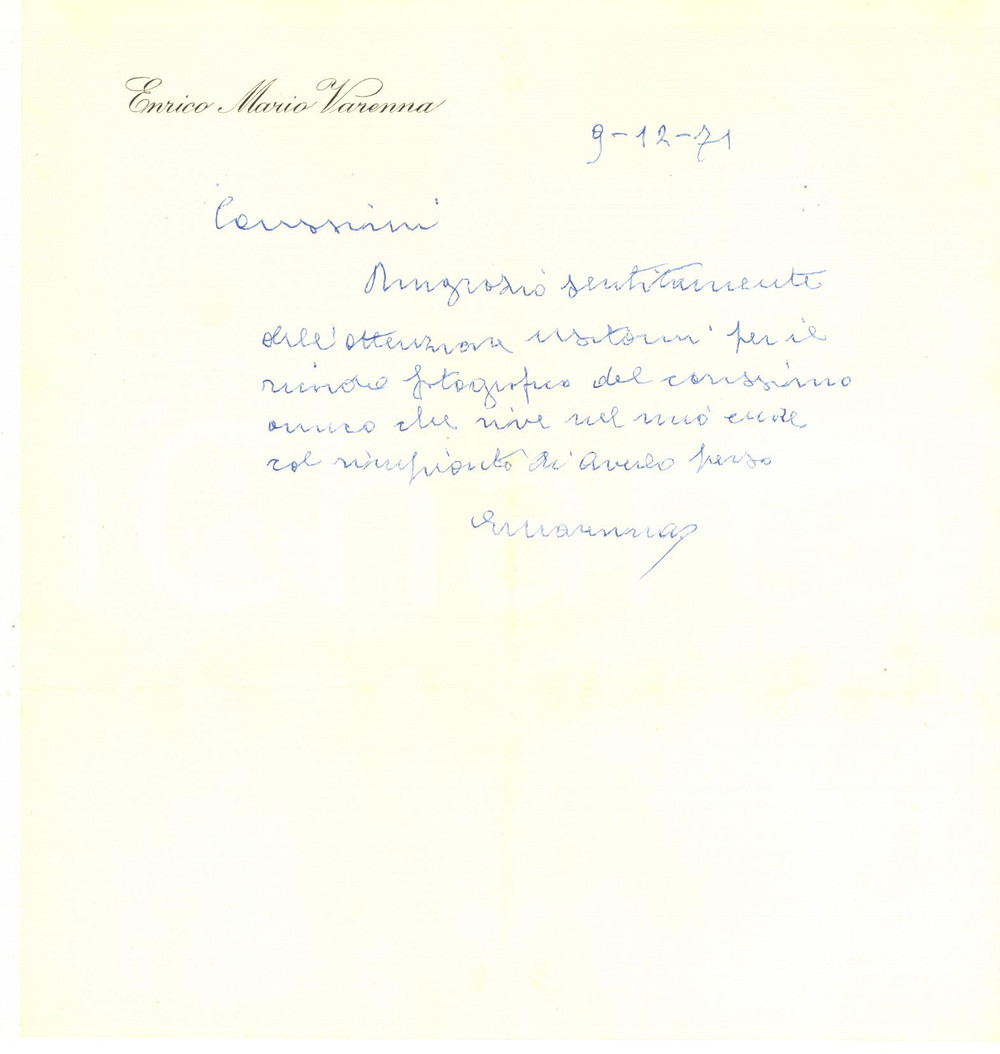 Enrico Mario Varenna
9-12-71
Carissimi
Ringrazio sentitamente
dell'attenzione usatami per il
ricordo fotografico del carissimo
amico che vive nel mio cuore
col rimpianto di averlo perso
EMVarenna